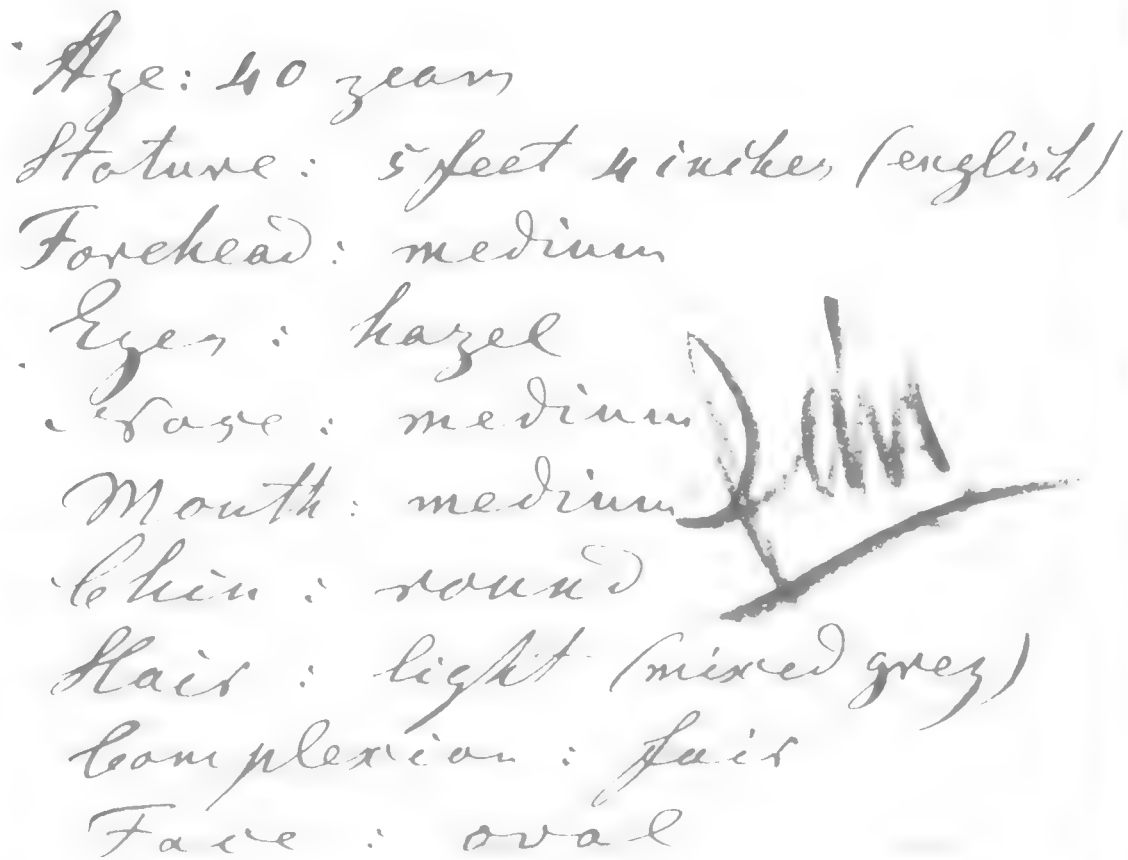 Age: 40 years
Stature: 5 feet 4 inches (english)
Forehead: medium
Eyes: hazel
Nose: medium
Mouth: medium
Chin: round
Hair: light (mixed grey)
Complexion: fair
Face: oval